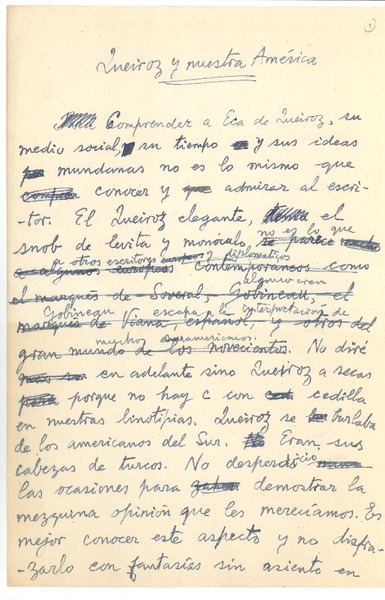 1
Queiroz y nuestra América
Comprender a Eca de Queiroz, su
medio social, su tiempo y sus ideas
mundanas no es lo mismo que
conocer y admirar al escri-
tor. El Queiroz elegante, el
snob de levita y monóculo no es lo que
se parece mucho
a otros escritores y diplomáticos
a algunos europeos contemporáneos como
alguno cree
el marqués de Soveral, Gobineau, el
Gobineau escapa a la interpretación de
marqués de Viana, español, y otros del
muchos suramericanos.
gran mundo de los novecientos. No diré
en adelante sino Queiroz a secas
porque no hay c con cedilla
en nuestras linotipias. Queiroz se burlaba
de los americanos del Sur. Eran sus
cabezas de turcos. No desperdició
las ocasiones para demostrar la
mezquina opinión que les merecíamos. Es
mejor conocer este aspecto y no disfra-
zarlo con fantasías sin asiento en